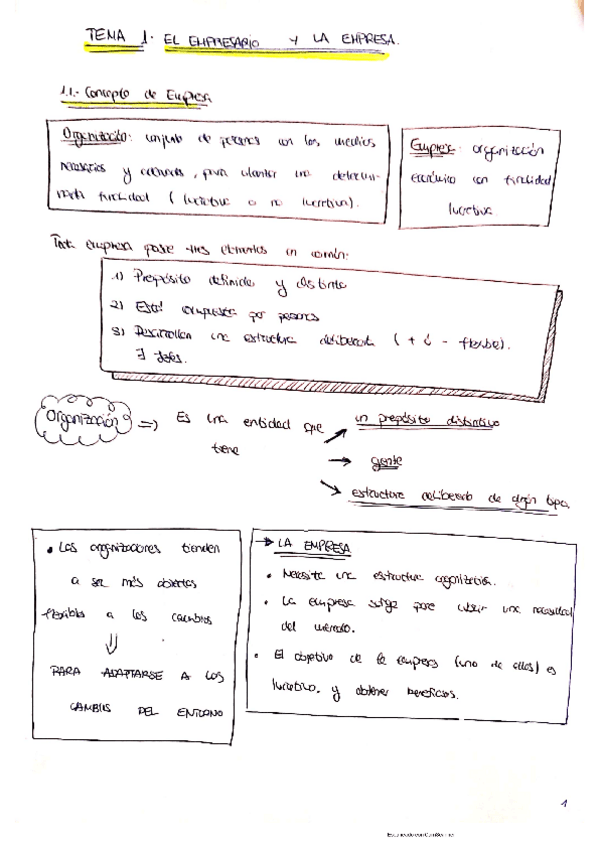 TEMA 1. EL EMPRESARIO Y LA EMPRESA.
1.1.- Concepto de Empresa
Organización: conjunto de personas con los medios
necesarios y adecuados, para alcanzar una determi-
nada finalidad (lucrativa o no lucrativa).
Empresa: organización
económica con finalidad
lucrativa.
Toda empresa posee tres elementos en común:
1) Propósito definido y distinto
2) Está compuesta por personas
3) Desarrollan una estructura deliberada (+ ó - flexible).
∃ Jefes.
Organización => Es una entidad que
tiene
→ un propósito distintivo
→ gente
→ estructura deliberada de algún tipo.
• Las organizaciones tienden
a ser más abiertas
flexibles a los cambios
⇓
PARA ADAPTARSE A LOS
CAMBIOS DEL ENTORNO
→ LA EMPRESA
• Necesita una estructura organización.
• La empresa surge para cubrir una necesidad
del mercado.
• El objetivo de la empresa (uno de ellos) es
lucrativo. y obtener beneficios.
1
Escaneado con CamScanner